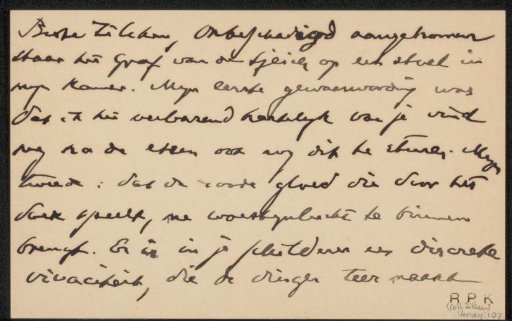 Beste Zilcken, Onbeschadigd aangekomen
staat het Graf van den Sjeich op een stoel in
mijn kamer. Mijn eerste gewaarwording was
dat ik het verbazend hartelijk van je vind
mij na de essen ook nog dit te sturen. Mijn
tweede: dat de roode gloed die door het
doek speelt, me woestijnlucht te binnen
brengt. Er is in je schilderen een discrete
vivaciteit, die de dingen teer maakt
R.P.K